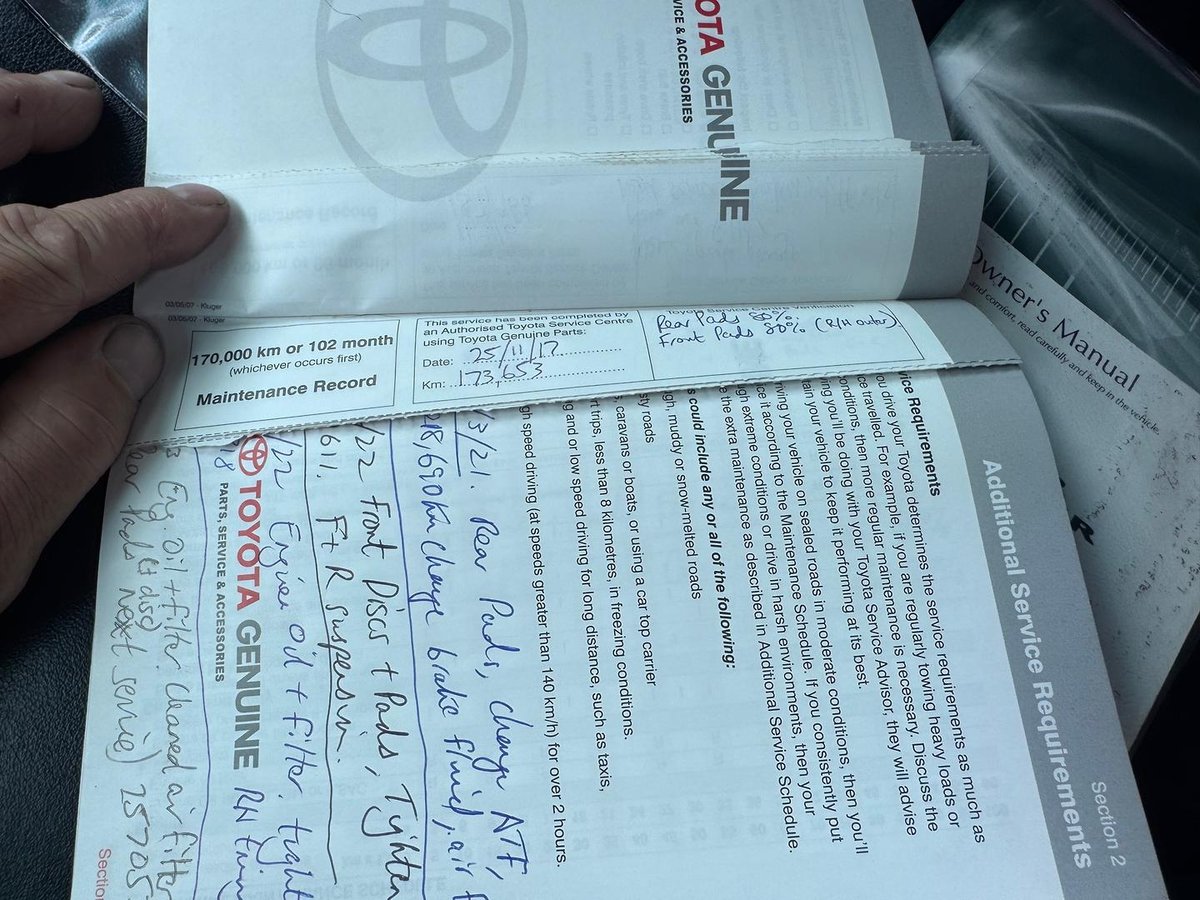 TOYOTA GENUINE
VICE & ACCESSORIES
03/05/07 - Kluger
03/05/07 - Kluger
170,000 km or 102 month
(whichever occurs first)
Maintenance Record
This service has been completed by
an Authorised Toyota Service Centre
using Toyota Genuine Parts:
Date: 25/11/17
Km: 173,653
Rear Pads 80%.
Front Pads 80% (R/H outer)
Owner's Manual
and comfort, read carefully and keep in the vehicle.
Section 2
Additional Service Requirements
vice Requirements
ou drive your Toyota determines the service requirements as much as
ce travelled. For example, if you are regularly towing heavy loads or
onditions, then more regular maintenance is necessary. Discuss the
ing you'll be doing with your Toyota Service Advisor, they will advise
ain your vehicle to keep it performing at its best.
riving your vehicle on sealed roads in moderate conditions, then you'll
ice it according to the Maintenance Schedule. If you consistently put
ugh extreme conditions or drive in harsh environments, then your
e the extra maintenance as described in Additional Service Schedule.
s could include any or all of the following:
gh, muddy or snow-melted roads
sty roads
, caravans or boats, or using a car top carrier
rt trips, less than 8 kilometres, in freezing conditions.
g and or low speed driving for long distance, such as taxis,
gh speed driving (at speeds greater than 140 km/h) for over 2 hours.
/3/21. Rear Pads, change ATF,
218,690km change brake fluid, air f
/22 Front Discs + Pads, Tighten
611. F+R suspension.
/22 Engine Oil + filter. tight
TOYOTA GENUINE
PARTS, SERVICE & ACCESSORIES
Eng oil + filter. Cleaned air filter
Rear Pads & disc) Next service) 25705
Section